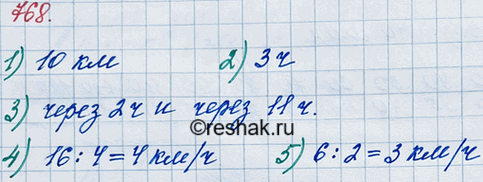 768.
1) 10 км 2) 3 ч
3) через 2 ч и через 11 ч.
©reshak.ru
4) 16 : 4 = 4 км/ч 5) 6 : 2 = 3 км/ч